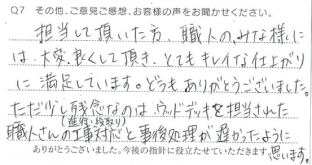 Q7 その他、ご意見ご感想、お客様の声をお聞かせください。
担当して頂いた方、職人の、みな様に
は、大変、軟くして頂き、とてもキレイな仕上がり
に満足しています。どうもありがとうございました。
ただ少し残念なのは、ウッドデッキを担当された
(連絡・段取り)
職人さんの工事対応と事後処理が遅かったように
思います。
ありがとうございました。今後の指針に役立たせていただきます。